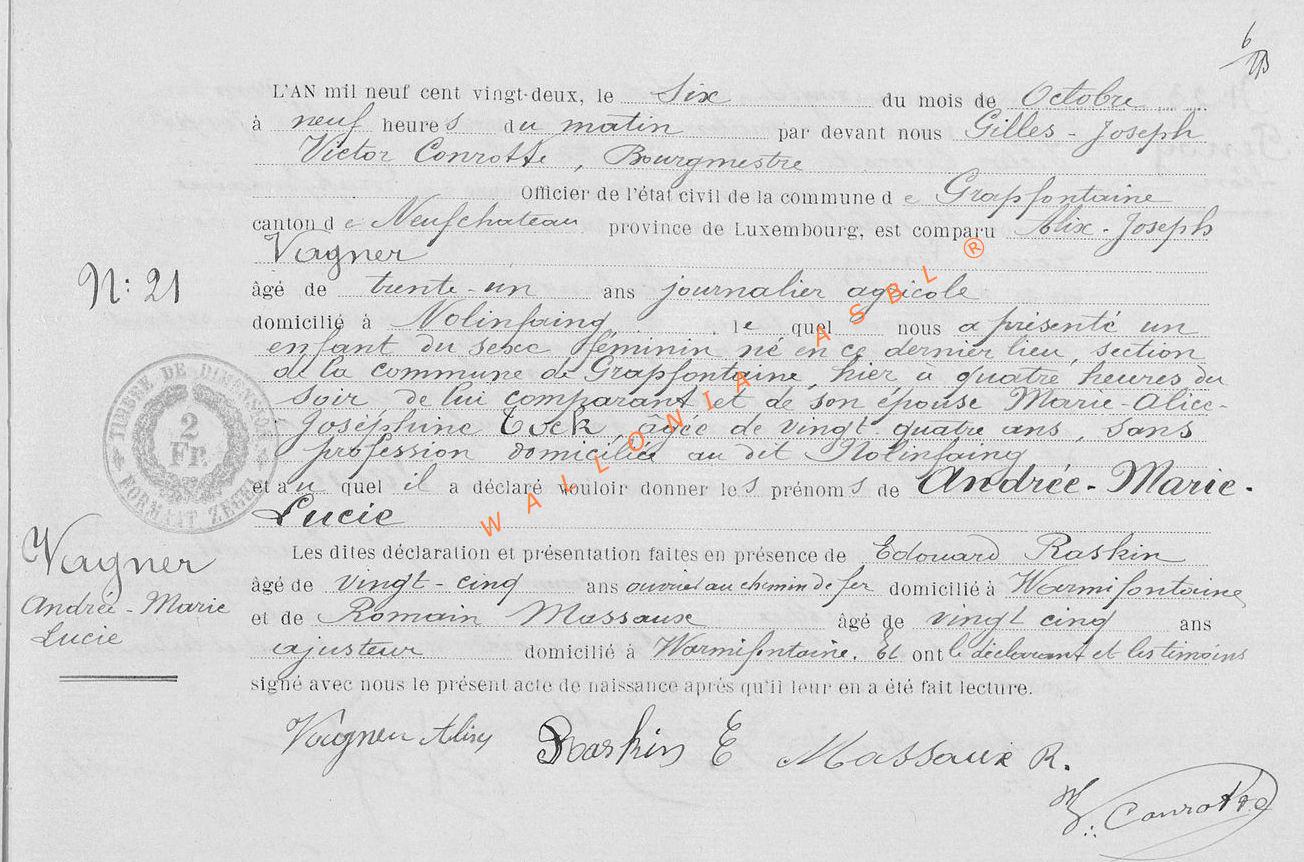 6
L'AN mil neuf cent vingt-deux, le Six du mois de Octobre
à neuf heures du matin par devant nous Gilles-Joseph
Victor Conrotte, Bourgmestre
Officier de l'état civil de la commune de Grapfontaine
canton de Neufchateau province de Luxembourg, est comparu Alix-Joseph
Vagner
N: 21
âgé de trente-un ans journalier agricole
domicilié à Nolinfaing, le quel nous a présenté un
enfant du sexe féminin né en ce dernier lieu, section
de la commune de Grapfontaine, hier à quatre heures du
soir de lui comparant et de son épouse Marie-Alice-
Joséphine Tock, âgée de vingt quatre ans, sans
profession domiciliée au dit Nolinfaing
et au quel il a déclaré vouloir donner les prénoms de Andrée-Marie-
Lucie
TIMBRE DE DIMENSION
2
Fr.
FORMAAT ZEGEL
WALLONIA ASBL ®
Les dites déclaration et présentation faites en présence de Edouard Raskin
Vagner
Andrée-Marie
Lucie
âgé de vingt-cinq ans ouvrier au chemin de fer domicilié à Warmifontaine
et de Romain Massaux âgé de vingt cinq ans
ajusteur domicilié à Warmifontaine. Et ont le déclarant et les témoins
signé avec nous le présent acte de naissance après qu'il leur en a été fait lecture.
Vagner Raskin E Massaux R.
Conrotte